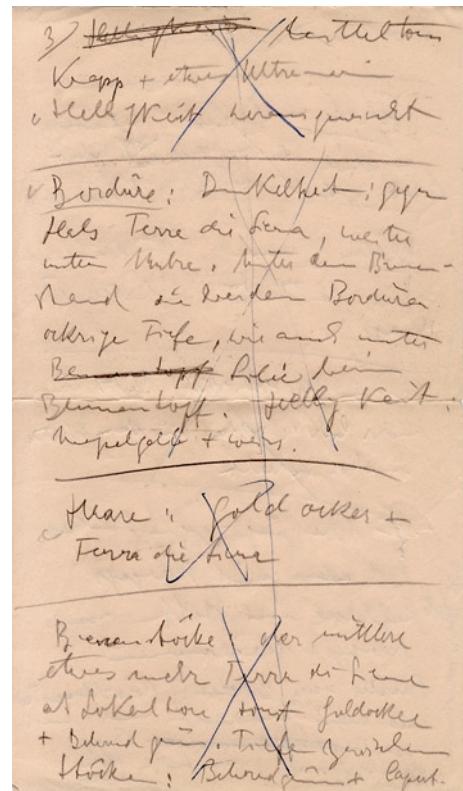 3) Helligkeit Mittelton
Krapp + etwas Ultramarin
Helligkeit herausgewischt
Bordüre: Dunkelheit: gegen
Hals Terra di Siena, weiter
unten Umbra. Unter dem Bienen-
stand die beiden Bordüren
ockrige Tiefe, wie auch unter
Lilie beim
Blumentopf. Helligkeit:
Neapelgelb + weiss.
Haare: Goldocker +
Terra di Siena
Bienenstöcke: der mittlere
etwas mehr Terra di Siena
als Lokalton sonst Goldocker
+ Tiefe zwischen
Stöcken: + Caput.